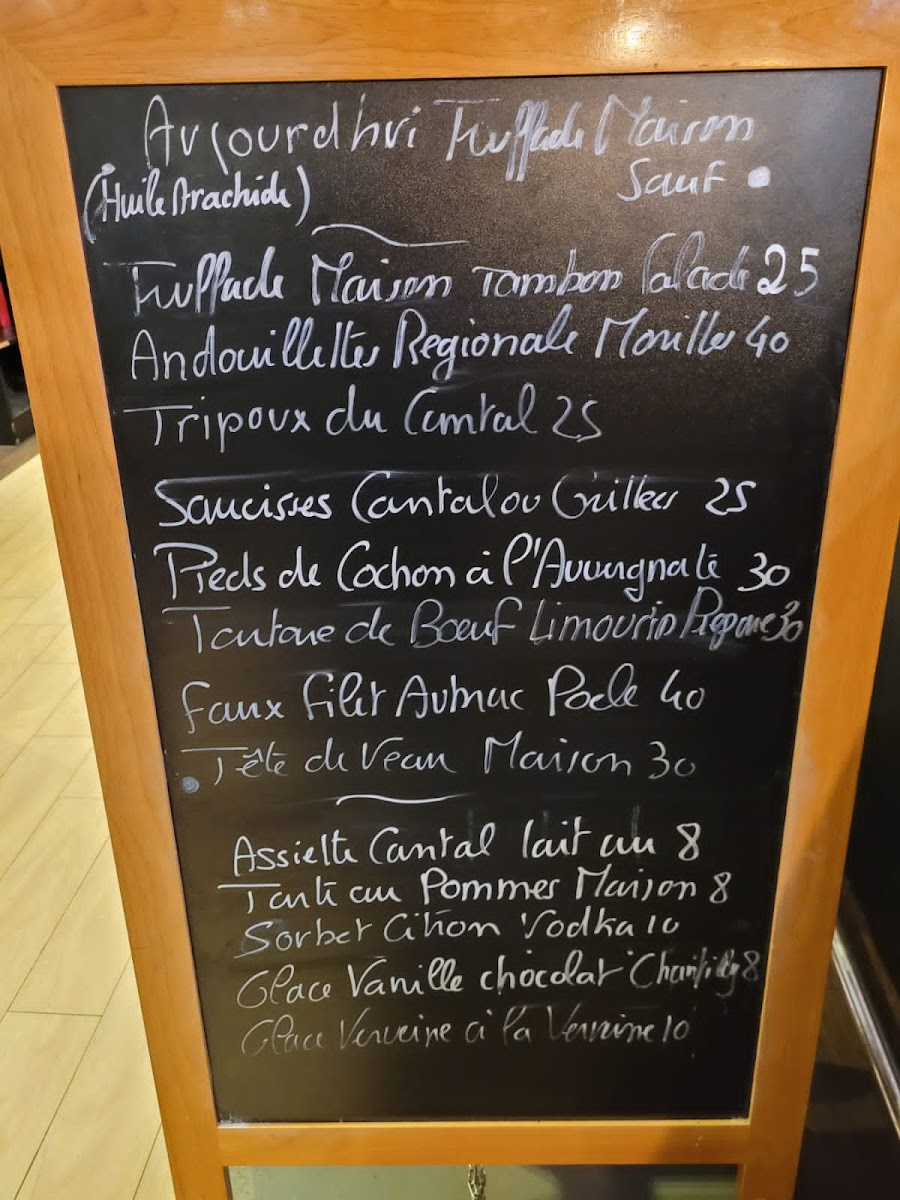 Aujourd'hui Truffade Maison
(Huile Arachide) Sauf •
Truffade Maison Jambon Salade 25
Andouillettes Regionale Morilles 40
Tripoux du Cantal 25
Saucisses Cantalou Grillees 25
Pieds de Cochon à l'Auvergnate 30
Tartare de Bœuf Limousin Prepare 30
Faux Filet Aubrac Poele 40
• Tête de Veau Maison 30
Assiette Cantal lait cru 8
Tarte au Pommes Maison 8
Sorbet Citron Vodka 10
Glace Vanille chocolat Chantilly 8
Glace Verveine à la Verveine 10